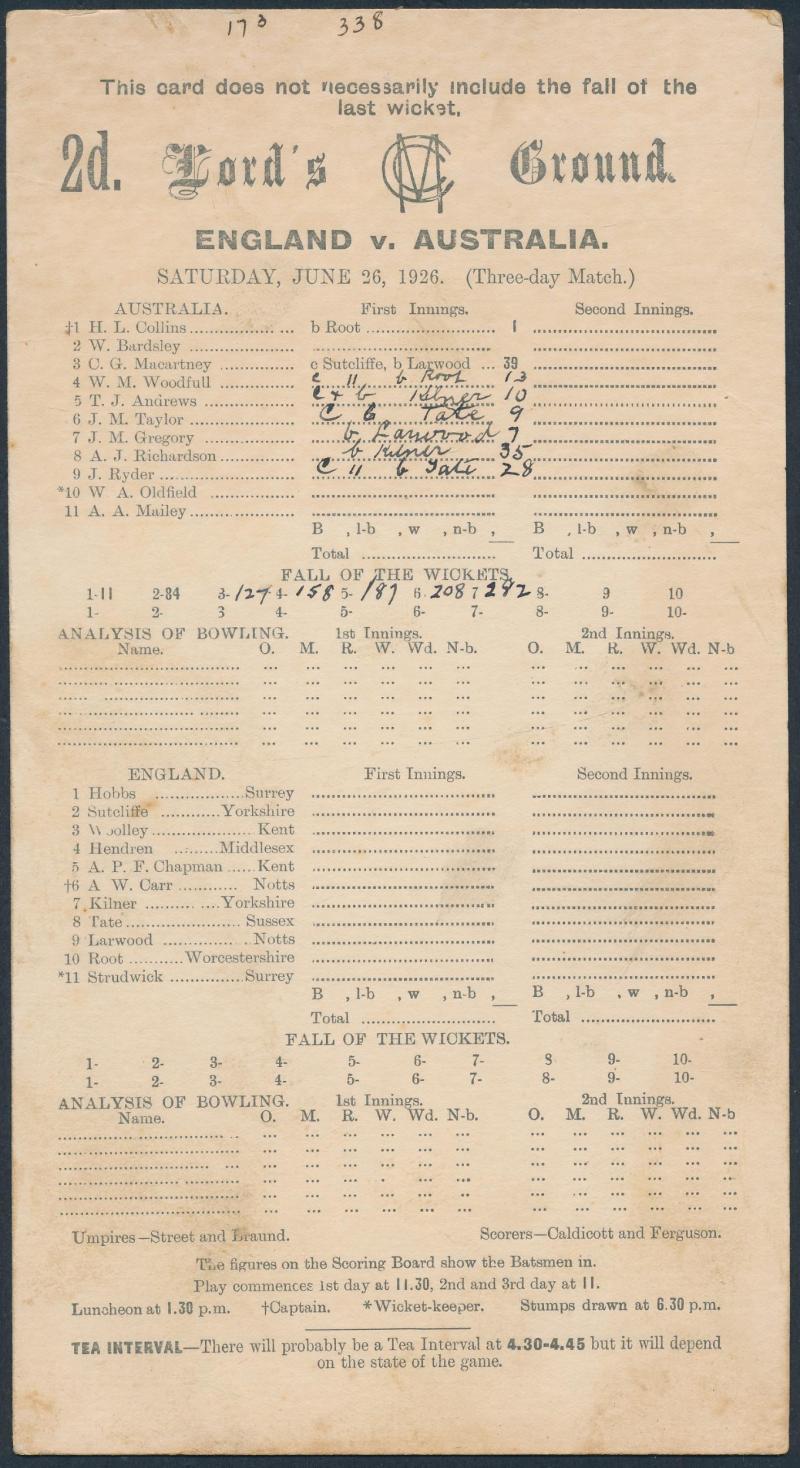 173 338
This card does not necessarily include the fall of the
last wicket.
2d. Lord's MCC Ground.
ENGLAND v. AUSTRALIA.
SATURDAY, JUNE 26, 1926. (Three-day Match.)
AUSTRALIA. First Innings. Second Innings.
†1 H. L. Collins b Root 1
2 W. Bardsley
3 C. G. Macartney c Sutcliffe, b Larwood 39
4 W. M. Woodfull c " b Root 13
5 T. J. Andrews c & b Kilner 10
6 J. M. Taylor c b Tate 9
7 J. M. Gregory b Larwood 7
8 A. J. Richardson b Kilner 35
9 J. Ryder c " b Tate 28
*10 W A. Oldfield
11 A. A. Mailey
B , l-b , w , n-b , B , l-b , w , n-b ,
Total Total
FALL OF THE WICKETS.
1-11 2-84 3-127 4-158 5-187 6 208 7 282 8- 9 10
1- 2- 3 4- 5- 6- 7- 8- 9- 10-
ANALYSIS OF BOWLING. 1st Innings. 2nd Innings.
Name. O. M. R. W. Wd. N-b. O. M. R. W. Wd. N-b
ENGLAND. First Innings. Second Innings.
1 Hobbs Surrey
2 Sutcliffe Yorkshire
3 Woolley Kent
4 Hendren Middlesex
5 A. P. F. Chapman Kent
†6 A W. Carr Notts
7 Kilner Yorkshire
8 Tate Sussex
9 Larwood Notts
10 Root Worcestershire
*11 Strudwick Surrey
B , l-b , w , n-b , B , l-b , w , n-b ,
Total Total
FALL OF THE WICKETS.
1- 2- 3- 4- 5- 6- 7- 8 9- 10-
1- 2- 3- 4- 5- 6- 7- 8- 9- 10-
ANALYSIS OF BOWLING. 1st Innings. 2nd Innings.
Name. O. M. R. W. Wd. N-b. O. M. R. W. Wd. N-b
Umpires—Street and Braund. Scorers—Caldicott and Ferguson.
The figures on the Scoring Board show the Batsmen in.
Play commences 1st day at 11.30, 2nd and 3rd day at 11.
Luncheon at 1.30 p.m. †Captain. *Wicket-keeper. Stumps drawn at 6.30 p.m.
TEA INTERVAL—There will probably be a Tea Interval at 4.30-4.45 but it will depend
on the state of the game.